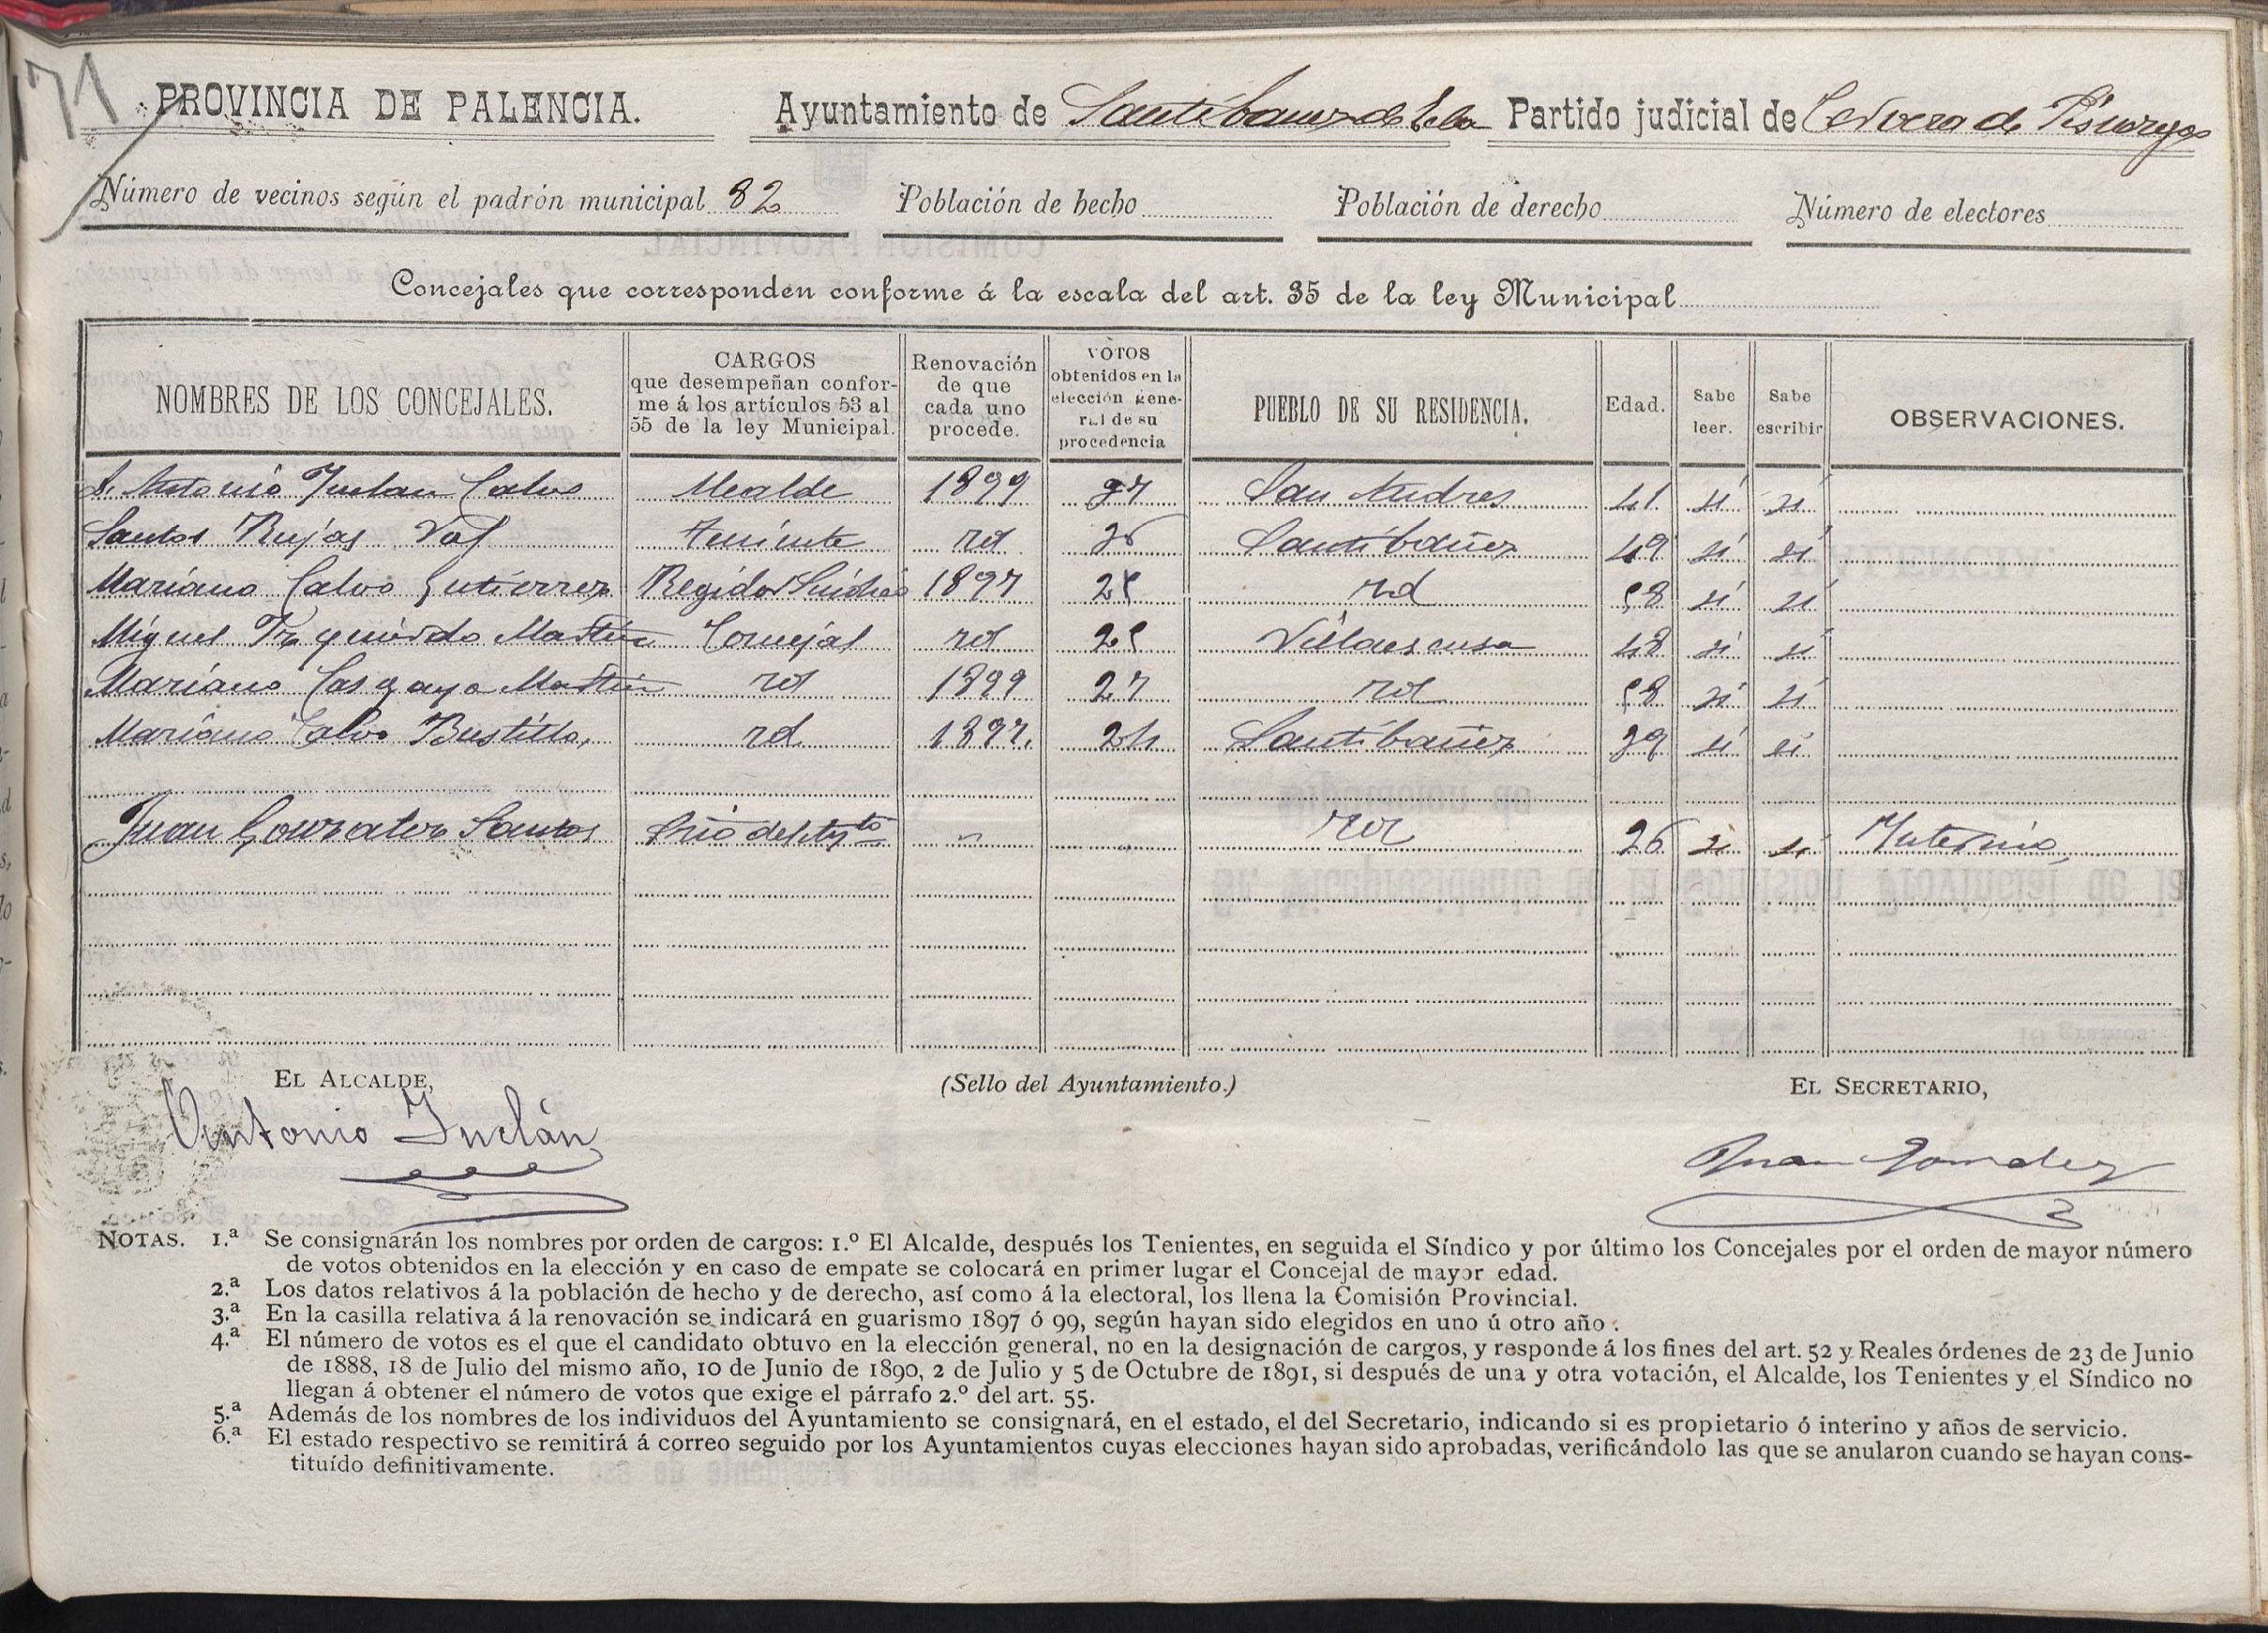 171
PROVINCIA DE PALENCIA. Ayuntamiento de Santibañez de Ecla Partido judicial de Cervera de Pisuerga
Número de vecinos según el padrón municipal 82 Población de hecho Población de derecho Número de electores
Concejales que corresponden conforme á la escala del art. 35 de la ley Municipal
NOMBRES DE LOS CONCEJALES. CARGOS que desempeñan confor- me á los artículos 53 al 55 de la ley Municipal. Renovación de que cada uno procede. VOTOS obtenidos en la elección gene- ral de su procedencia PUEBLO DE SU RESIDENCIA. Edad. Sabe leer. Sabe escribir OBSERVACIONES.
D. Antonio Inclan Calvo Alcalde 1899 27 San Andres 41 si si
Santos Rujas Val Teniente id 26 Santibañez 49 si si
Mariano Calvo Gutierrez Regidor Sindico 1897 25 id 58 si si
Miguel Izquierdo Martin Concejal id 25 Villaescusa 48 si si
Mariano Casgaya Martin id 1899 27 id 58 si si
Mariano Calvo Bustillo, id 1897. 24 Santibañez 39 si si
Juan Gonzalez Santos Srio del Ayto " " id 26 si si Interino,
EL ALCALDE, (Sello del Ayuntamiento.) EL SECRETARIO,
Antonio Inclán Juan Gonzalez
NOTAS. 1.ª Se consignarán los nombres por orden de cargos: 1.º El Alcalde, después los Tenientes, en seguida el Síndico y por último los Concejales por el orden de mayor número
de votos obtenidos en la elección y en caso de empate se colocará en primer lugar el Concejal de mayor edad.
2.ª Los datos relativos á la población de hecho y de derecho, así como á la electoral, los llena la Comisión Provincial.
3.ª En la casilla relativa á la renovación se indicará en guarismo 1897 ó 99, según hayan sido elegidos en uno ú otro año.
4.ª El número de votos es el que el candidato obtuvo en la elección general, no en la designación de cargos, y responde á los fines del art. 52 y Reales órdenes de 23 de Junio
de 1888, 18 de Julio del mismo año, 10 de Junio de 1890, 2 de Julio y 5 de Octubre de 1891, si después de una y otra votación, el Alcalde, los Tenientes y el Síndico no
llegan á obtener el número de votos que exige el párrafo 2.º del art. 55.
5.ª Además de los nombres de los individuos del Ayuntamiento se consignará, en el estado, el del Secretario, indicando si es propietario ó interino y años de servicio.
6.ª El estado respectivo se remitirá á correo seguido por los Ayuntamientos cuyas elecciones hayan sido aprobadas, verificándolo las que se anularon cuando se hayan cons-
tituído definitivamente.